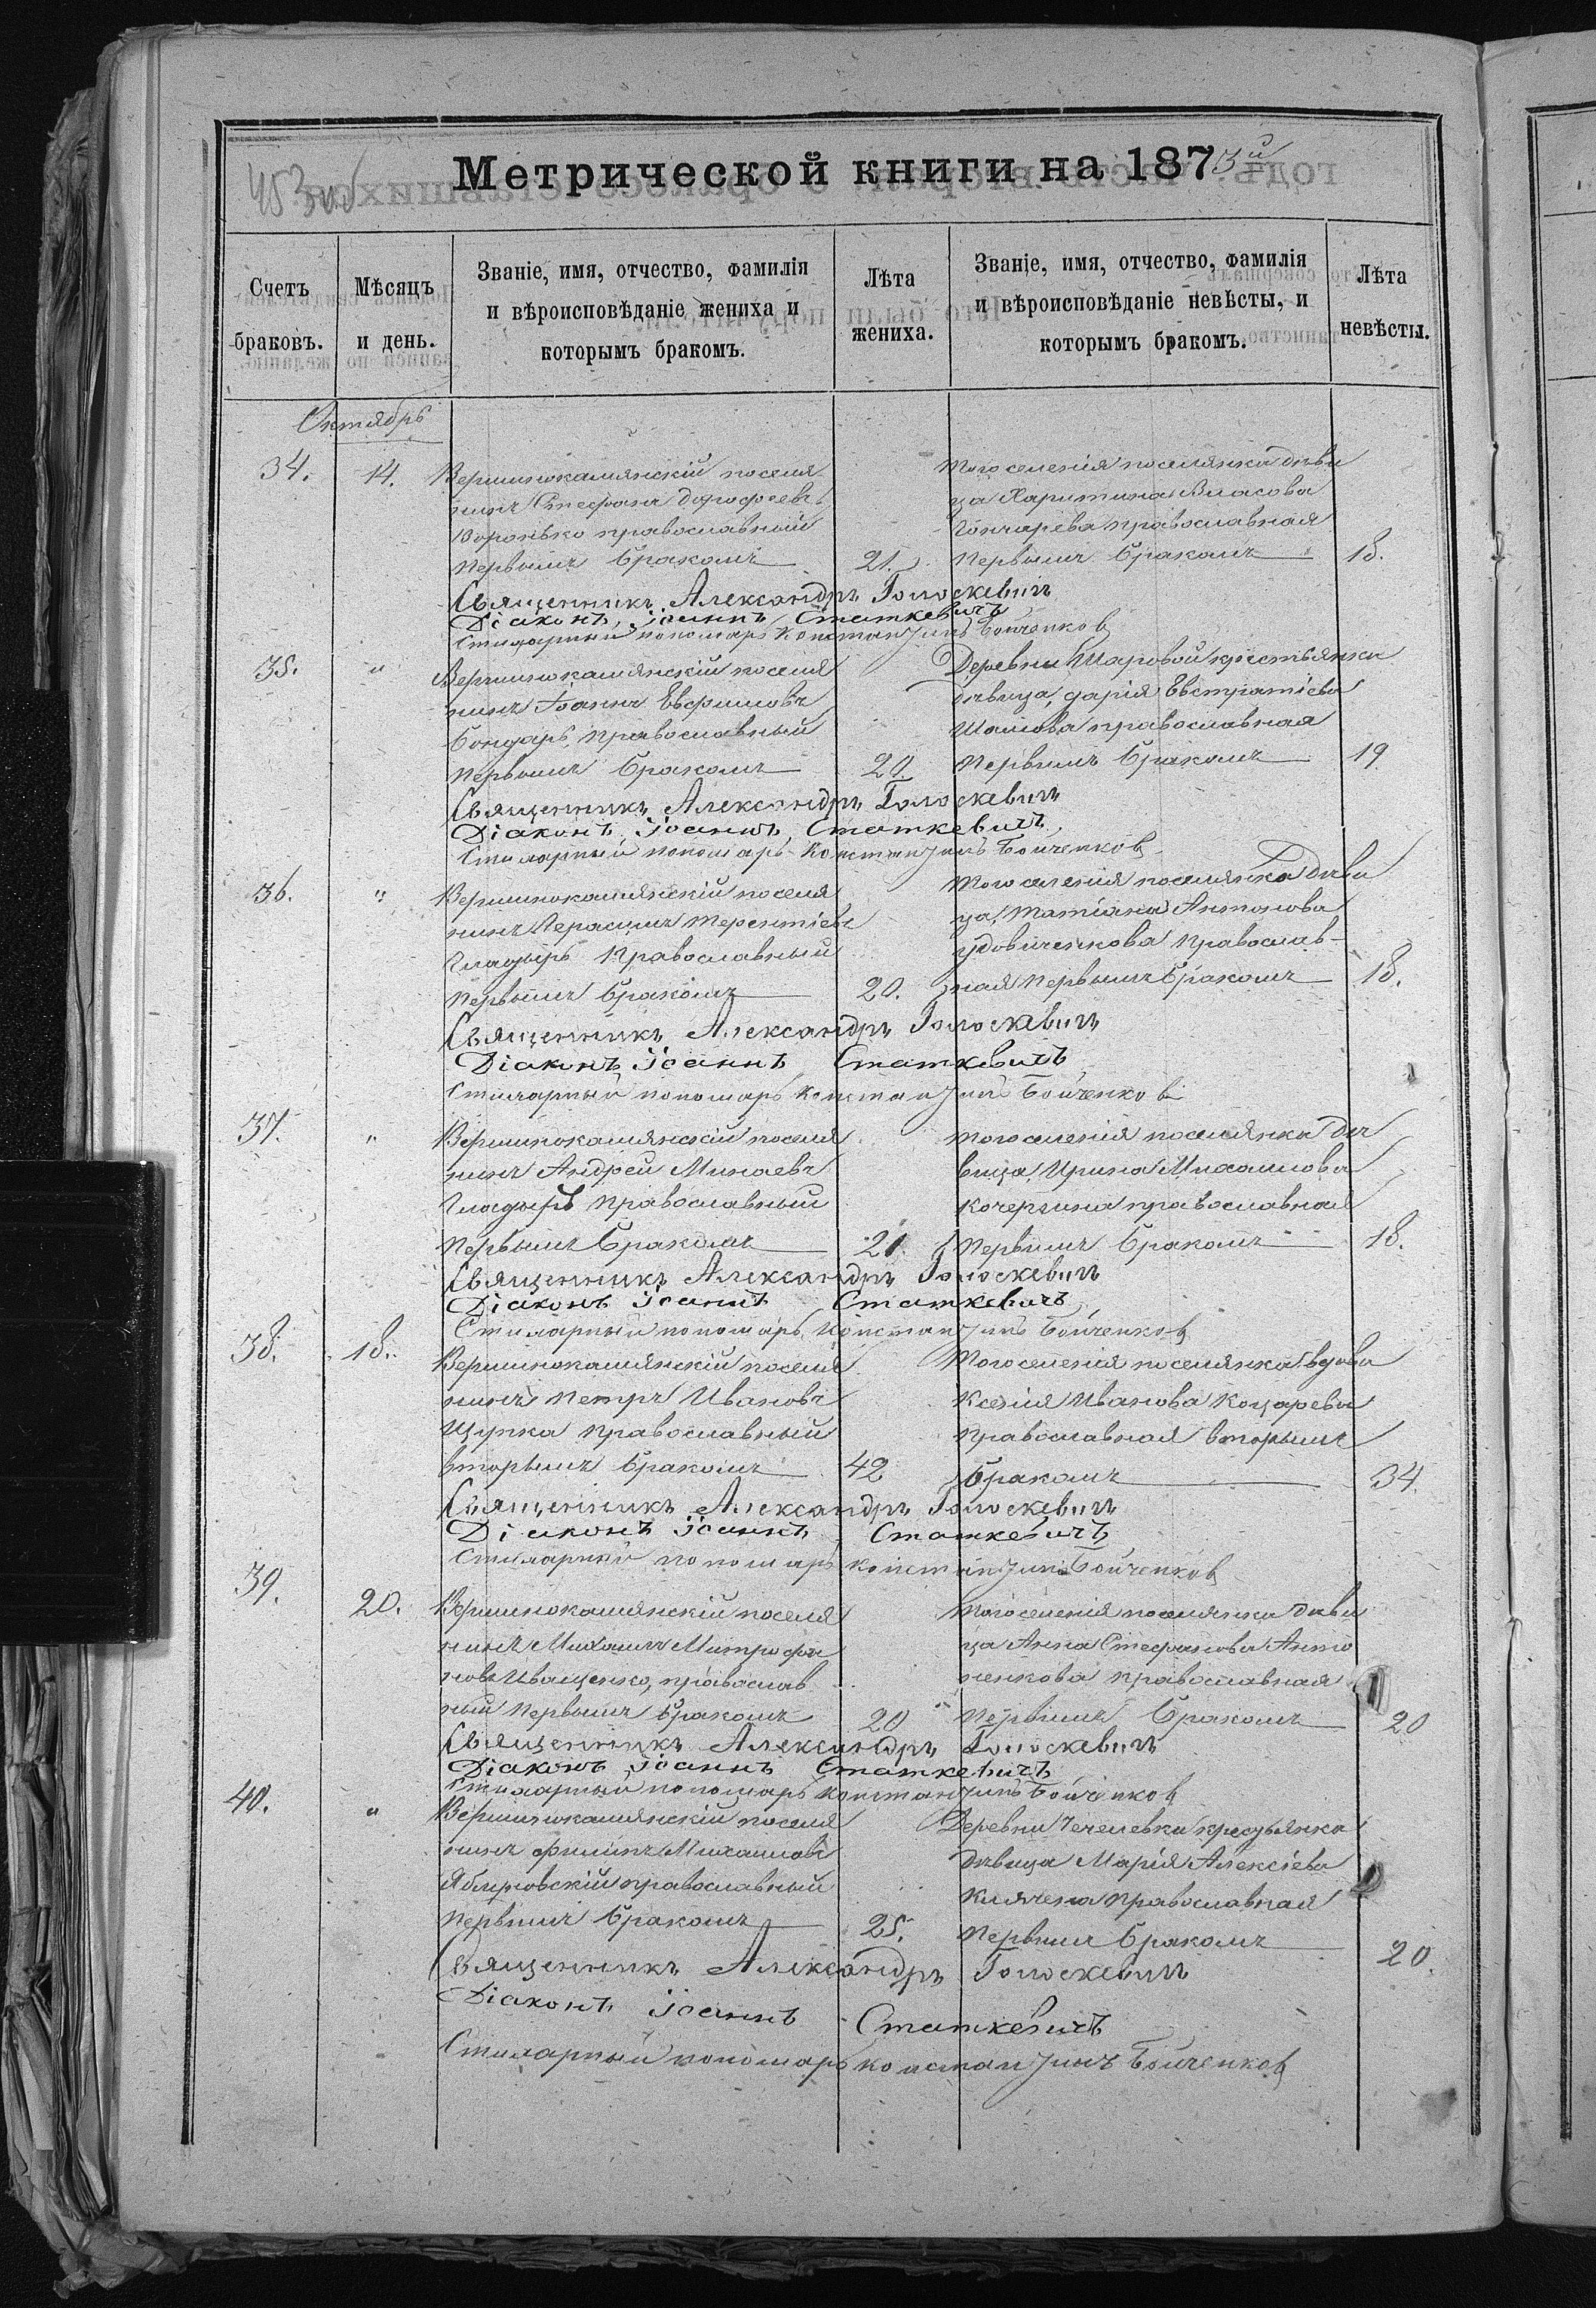 Метрической книги на 1873й
Счетъ браковъ.
Мѣсяцъ и день.
Званіе, имя, отчество, фамилія
и вѣроисповѣданіе жениха и
которымъ бракомъ.
Лѣта жениха.
Званіе, имя, отчество, фамилія
и вѣроисповѣданіе невѣсты, и
которымъ бракомъ.
Лѣта невѣсты.
Октябрь
34. 14.
Вершинокамянскій поселя
нинъ Стефанъ Дорофеевъ
Воронько православный
первымъ бракомъ 21.
Того селенія поселянка дѣви
ца Харитина Власова
Гончарева православная
первымъ бракомъ 18.
Священникъ Александръ Голоскевичъ
Діаконъ Іоаннъ Статкевичъ
Стихарный пономарь Константинъ Бойченков
35. "
Вершинокамянскій поселя
нинъ Іоаннъ Евфимовъ
Бондарь, православный
первымъ бракомъ 20.
Деревни Шаровой крестьянка
дѣвица, Дарія Евстратіева
Шамова православная
первымъ бракомъ 19.
Священникъ Александръ Голоскевичъ
Діаконъ Іоаннъ Статкевичъ
Стихарный пономарь Константинъ Бойченков
36. "
Вершинокамянскій поселя
нинъ Герасимъ Терентіевъ
Гладырь православный
первымъ бракомъ 20.
Того селенія поселянка дѣви
ца, Татіана Антонова
Удовиченкова православ-
ная первымъ бракомъ 18.
Священникъ Александръ Голоскевичъ
Діаконъ Іоаннъ Статкевичъ
Стихарный пономарь Константинъ Бойченков
37. "
Вершинокамянскій поселя
нинъ Андрей Минаевъ
Гладырь православный
первымъ бракомъ 21.
Того селенія поселянка дѣ
вица, Ирина Михаилова
Кочергина православная
первымъ бракомъ 18.
Священникъ Александръ Голоскевичъ
Діаконъ Іоаннъ Статкевичъ
Стихарный пономарь Константинъ Бойченков
38. 18.
Вершинокамянскій поселя
нинъ Петръ Ивановъ
Щупка православный
вторымъ бракомъ 42
Того селенія поселянка вдова
Ксенія Иванова Коцарева
православная вторымъ
бракомъ 34.
Священникъ Александръ Голоскевичъ
Діаконъ Іоаннъ Статкевичъ
Стихарный пономарь Константинъ Бойченков
39. 20.
Вершинокамянскій поселя
нинъ Михаилъ Митрофа
новъ Иващенко, православ
ный первымъ бракомъ 20
Того селенія поселянка дѣви
ца Анна Стефанова Анто
ненкова православная
первымъ бракомъ 20
Священникъ Александръ Голоскевичъ
Діаконъ Іоаннъ Статкевичъ
Стихарный пономарь Константинъ Бойченков
40. "
Вершинокамянскій поселя
нинъ Филипъ Михаиловъ
православный
первымъ бракомъ 25.
Деревни Чечелевки крестьянка
дѣвица Марія Алексіева
православная
первымъ бракомъ 20.
Священникъ Александръ Голоскевичъ
Діаконъ Іоаннъ Статкевичъ
Стихарный пономарь Константинъ Бойченков